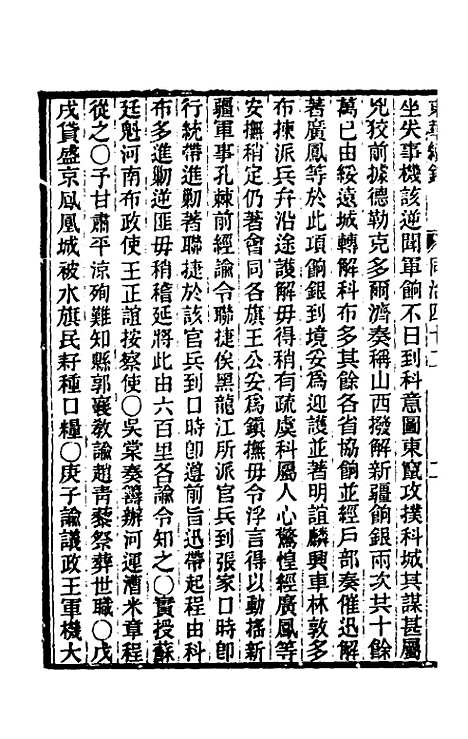 坐失事機該逆聞軍餉不日到科意圖東竄攻撲科城其謀甚屬
兇狡前據德勒克多爾濟奏稱山西撥解新疆餉銀兩次其十餘
萬已由綏遠城轉解科布多其餘各省協餉並經戶部奏催迅解
著廣鳳等於此項餉銀到境妥爲迎護並著明誼麟興車林敦多
布揀派兵弁沿途護解毋得稍有疏虞科屬人心驚惶經廣鳳等
安撫稍定仍著會同各旗王公妥爲鎭撫毋令浮言得以動搖新
疆軍事孔棘前經諭令聯捷俟黑龍江所派官兵到張家口時卽
行統帶進勦著聯捷於該官兵到口時卽遵前旨迅帶起程由科
布多進勦逆匪毋稍稽延將此由六百里各諭令知之〇實授蘇
廷魁河南布政使王正誼按察使〇吳棠奏籌辦河運漕米章程
從之〇予甘肅平涼殉難知縣郭襄敎諭趙靑藜祭葬世職〇戊
戌貸盛京鳳凰城被水旗民耔種口糧〇庚子諭議政王軍機大